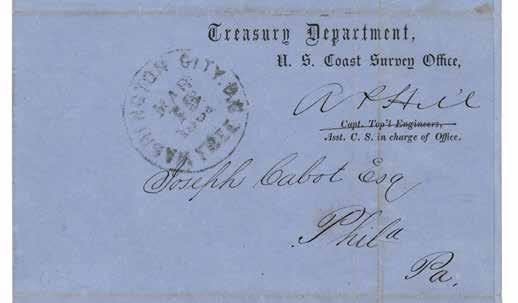 Treasury Department,
U. S. Coast Survey Office,
A P Hill
Capt. Top'l Engineers,
Asst. C. S. in charge of Office.
WASHINGTON CITY. D.C.
MAR
FREE
Joseph Cabot Esq
Phila
Pa.